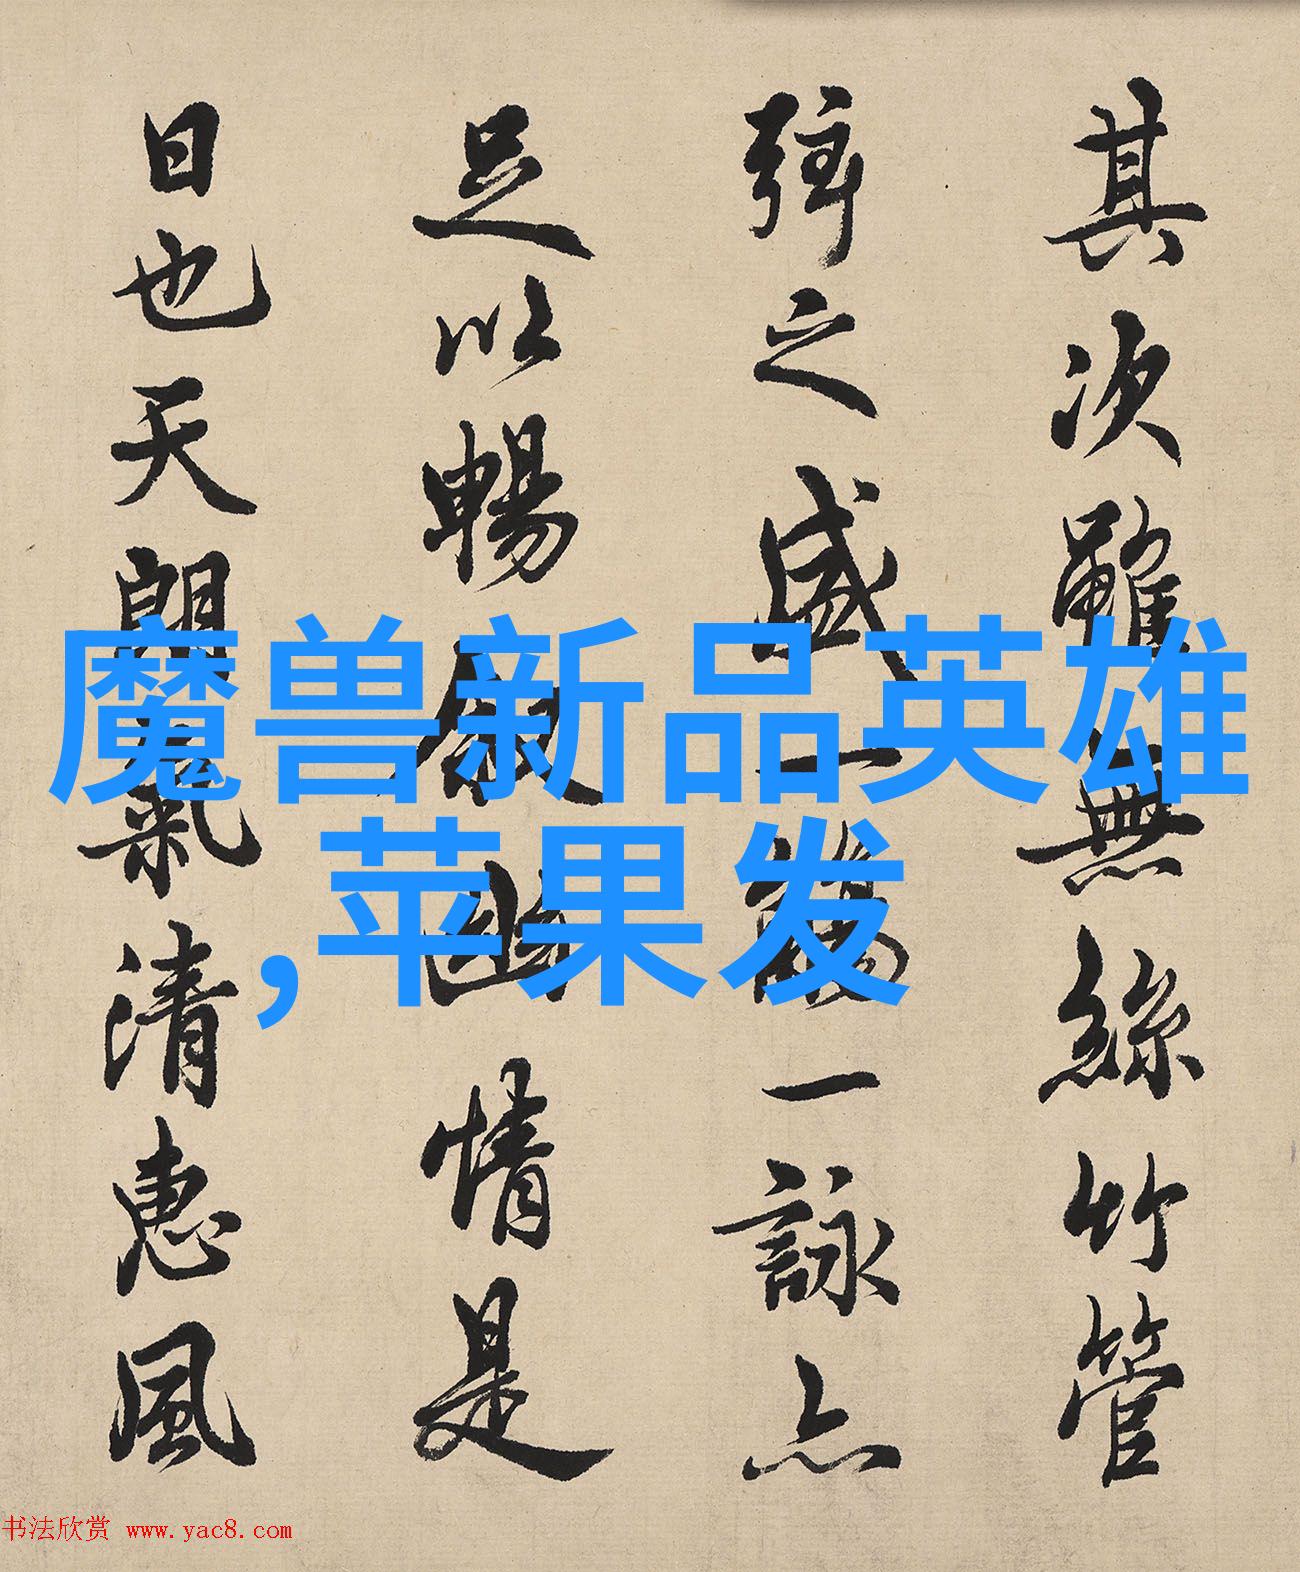 其次雖無絲竹管
弦之盛一觴一詠亦
足以暢敘幽情是
日也天朗氣清惠風
魔兽新品英雄
,苹果发
书法欣赏 www.yac8.com